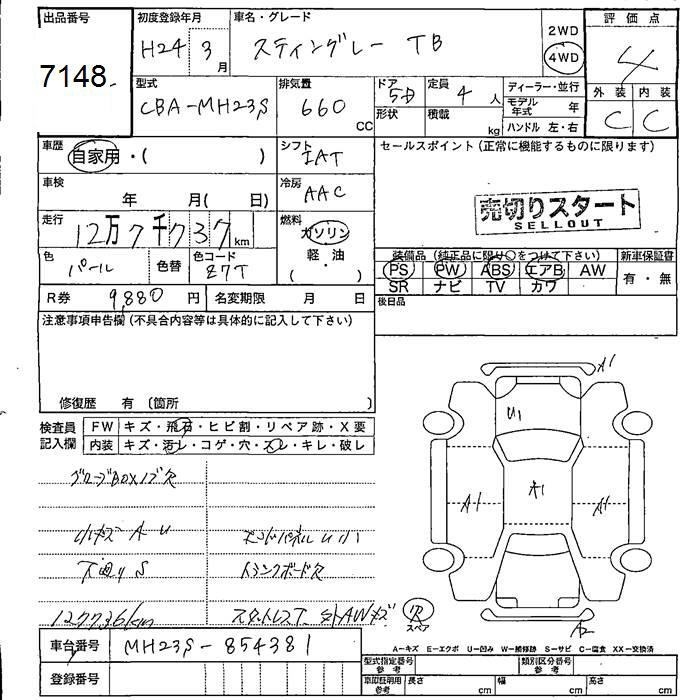 出品番号
7148
初度登録年月
H24 3月
車名・グレード
スティングレー TB
2WD
4WD
評価点
4
型式
CBA-MH23S
排気量
660
CC
ドア
5D
定員
4人
ディーラー・並行
モデル年式 年
形状
積載
kg
ハンドル 左・右
外装 内装
C C
車歴
自家用・( )
シフト
IAT
セールスポイント (正常に機能するものに限ります)
車検
年 月( 日)
冷房
AAC
売切りスタート
SELLOUT
走行
12万7千737km
燃料
ガソリン
軽・油
( ・ )
色
パール
色替
色コード
Z7T
装備品 (純正品に限り○をつけて下さい)
新車保証書
PS PW ABS エアB AW
有・無
SR ナビ TV カワ
R券 9,880円
名変期限 月 日
後日品
注意事項申告欄 (不具合内容等は具体的に記入して下さい)
修復歴 有 〔箇所 〕
検査員記入欄
FW キズ・飛石・ヒビ割・リペア跡・X要
内装 キズ・汚レ・コゲ・穴・スレ・キレ・破レ
グローブBOXノブ欠
小キズ A U
エンドパネル U小
下廻り S
トランクボード欠
127736km
A1
U1
A1
A1
A1
A2
スペア
A-キズ E-エクボ U-凹み W-補修跡 S-サビ C-腐食 XX-交換済
車台番号 MH23S-854381
登録番号
型式指定番号 参考
類別区分番号 参考
車庫証明用 参考
長さ cm
幅 cm
高さ cm